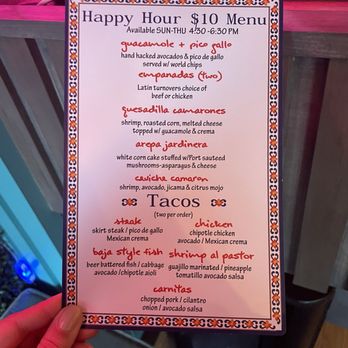 Happy Hour $10 Menu
Available SUN-THU 4:30-6:30 PM
guacamole + pico gallo
hand hacked avocados & pico de gallo
served w/ world chips
empanadas (two)
Latin turnovers choice of
beef or chicken
quesadilla camarones
shrimp, roasted corn, melted cheese
topped w/ guacamole & crema
arepa jardinera
white corn cake stuffed w/Port sauteed
mushrooms-asparagus & cheese
ceviche camaron
shrimp, avocado, jicama & citrus mojo
Tacos
(two per order)
steak
skirt steak / pico de gallo
Mexican crema
chicken
chipotle chicken
avocado / Mexican crema
baja style fish
beer battered fish / cabbage
avocado /chipotle aioli
shrimp al pastor
guajillo marinated / pineapple
tomatillo avocado salsa
carnitas
chopped pork / cilantro
onion / avocado salsa